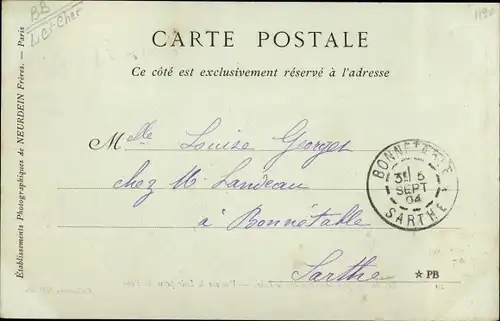 BB
L. et Cher
CARTE POSTALE
Ce côté est exclusivement réservé à l'adresse
Établissements Photographiques de NEURDEIN Frères. — Paris
Melle Louise Georges
chez M. Landeau
à Bonnétable
Sarthe
BONNÉTABLE
5
SEPT
04
SARTHE
★ PB